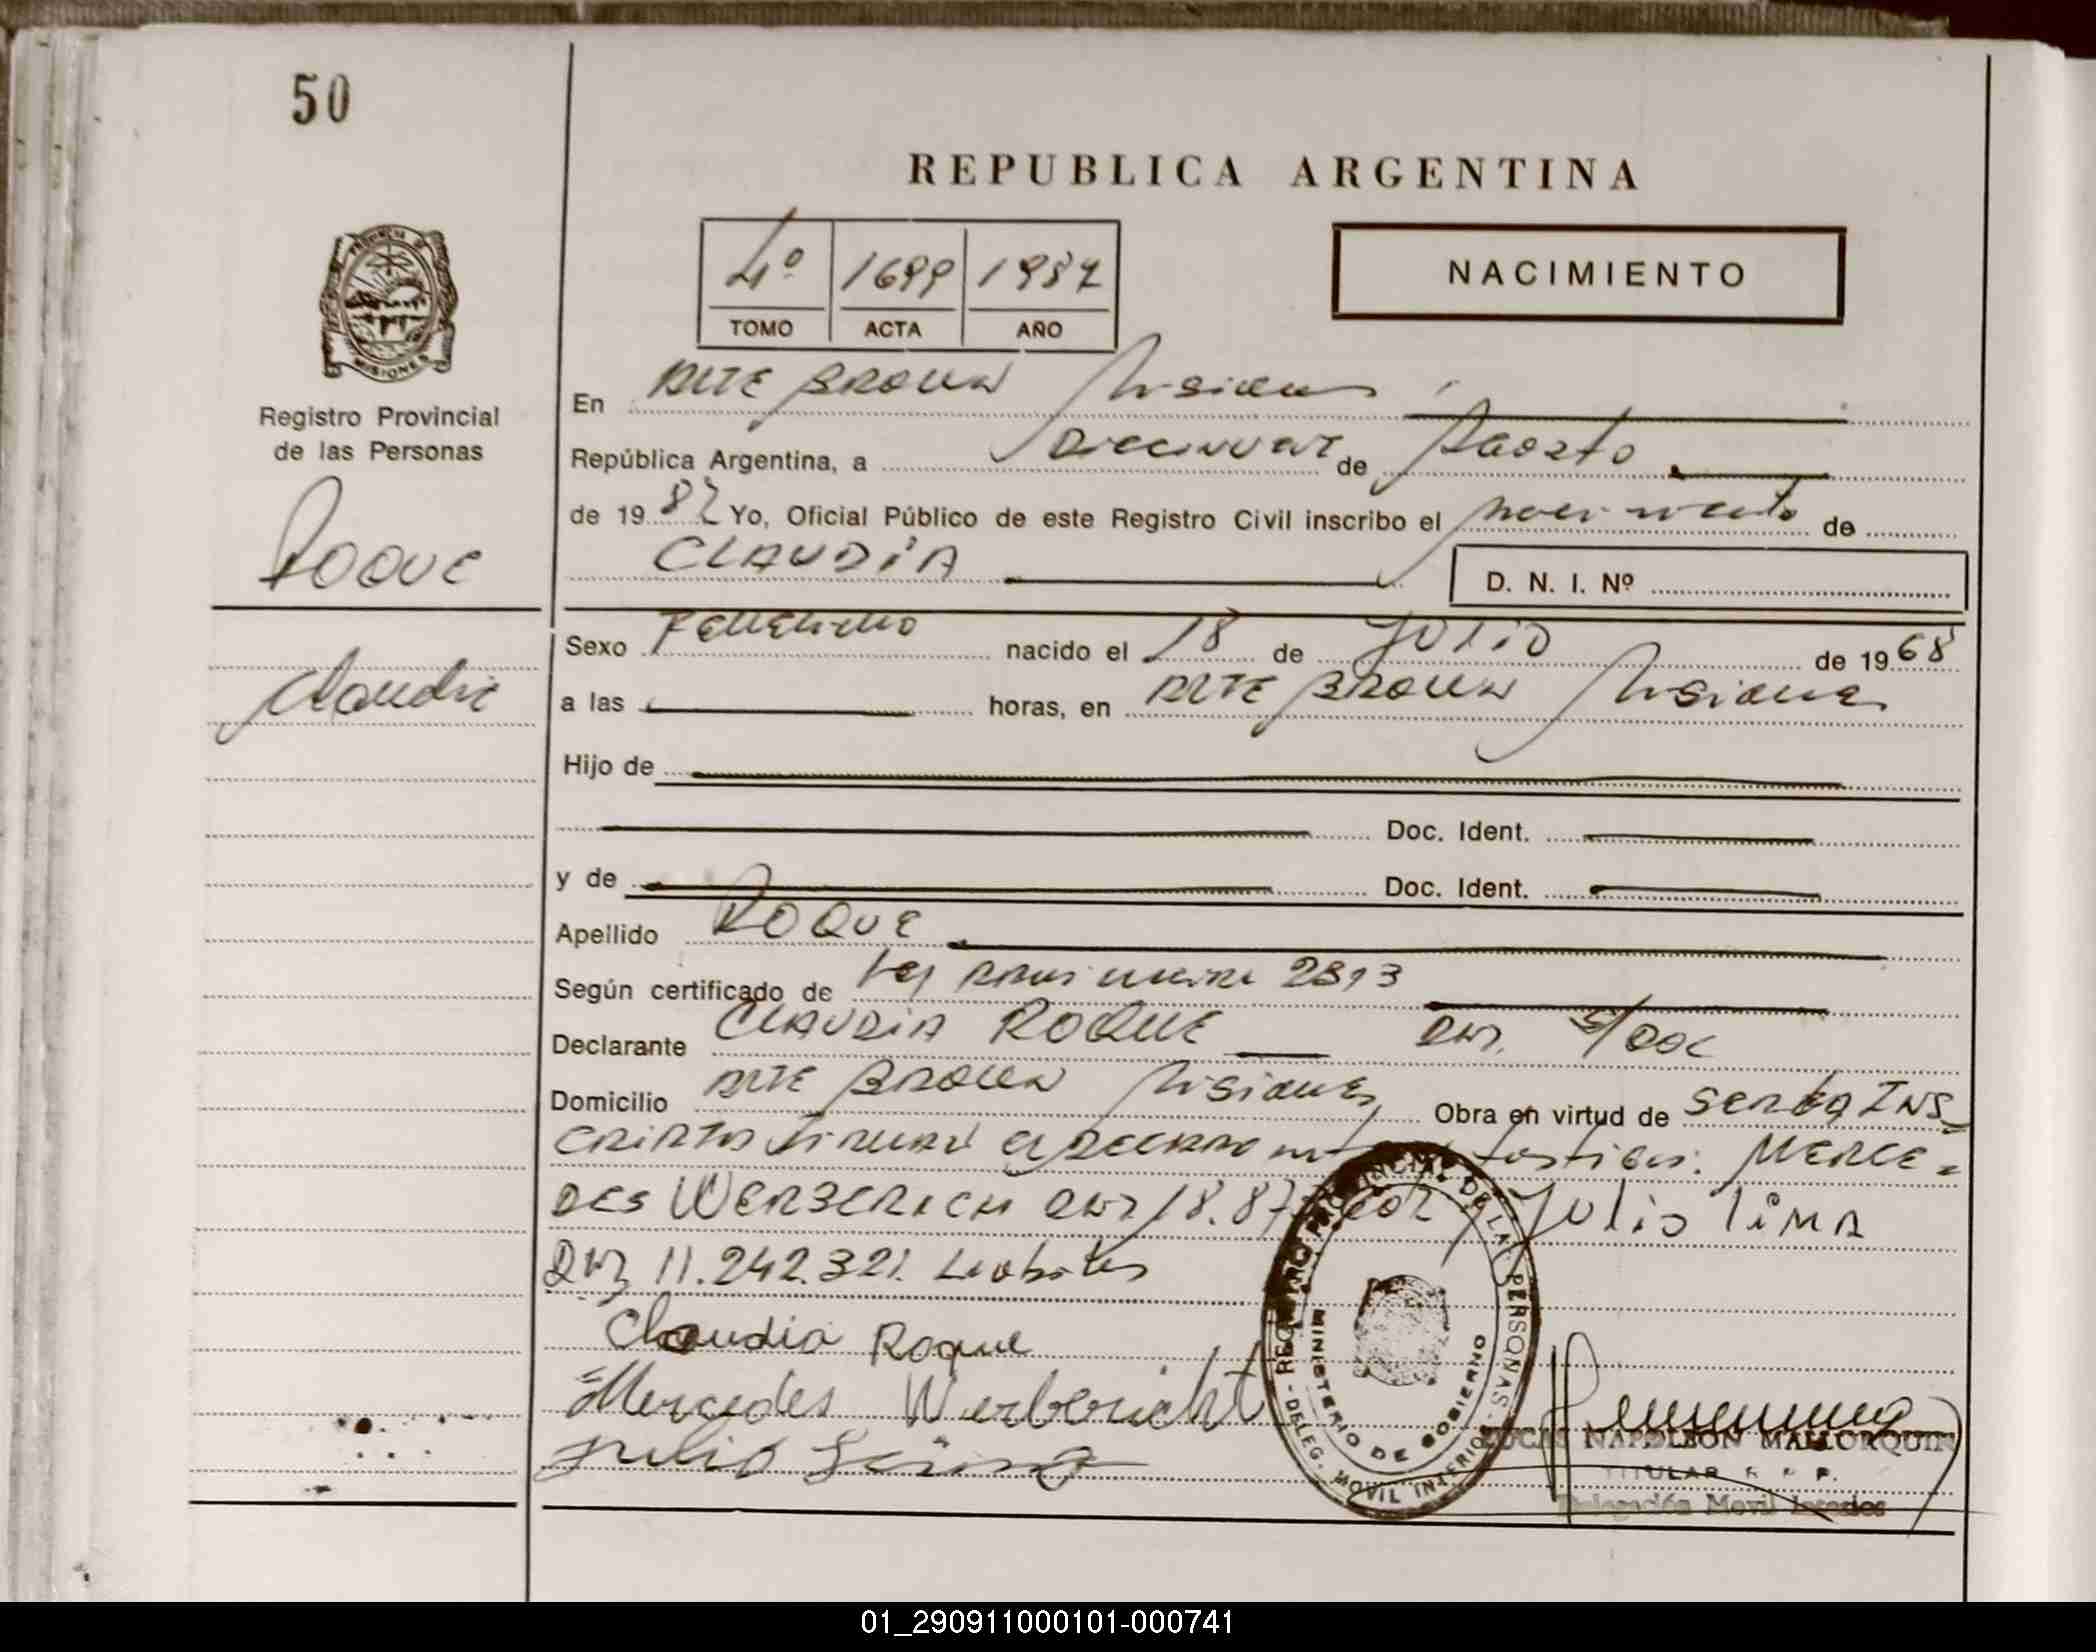 50
REPUBLICA ARGENTINA
4º 1699 1987
TOMO ACTA AÑO
NACIMIENTO
PROVINCIA D MISIONES
Registro Provincial
de las Personas
Roque
Claudia
En Alte Brown Misiones
República Argentina, a de Agosto
de 1987 Yo, Oficial Público de este Registro Civil inscribo el nacimiento de
CLAUDIA D. N. I. Nº
Sexo Femenino nacido el 18 de Julio de 1968
a las horas, en Alte Brown Misiones
Hijo de
Doc. Ident.
y de Doc. Ident.
Apellido ROQUE
Según certificado de Ley 2813
Declarante CLAUDIA ROQUE DNI. S/DOC
Domicilio Alte Brown Misiones Obra en virtud de ser la Ins
cripta testigos: MERCE-
DES WERBERICH DNI 18.87 Julio LIMA
DNI 11.242.321.
Claudia Roque
Mercedes Werbericht
Julio Lima
REGISTRO PROVINCIAL DE LAS PERSONAS
MINISTERIO DE GOBIERNO
DELEG. MOVIL INTERIOR
LUCAS NAPOLEON MALLORQUIN
TITULAR R. P. P.
Delegación Movil
01_290911000101-000741